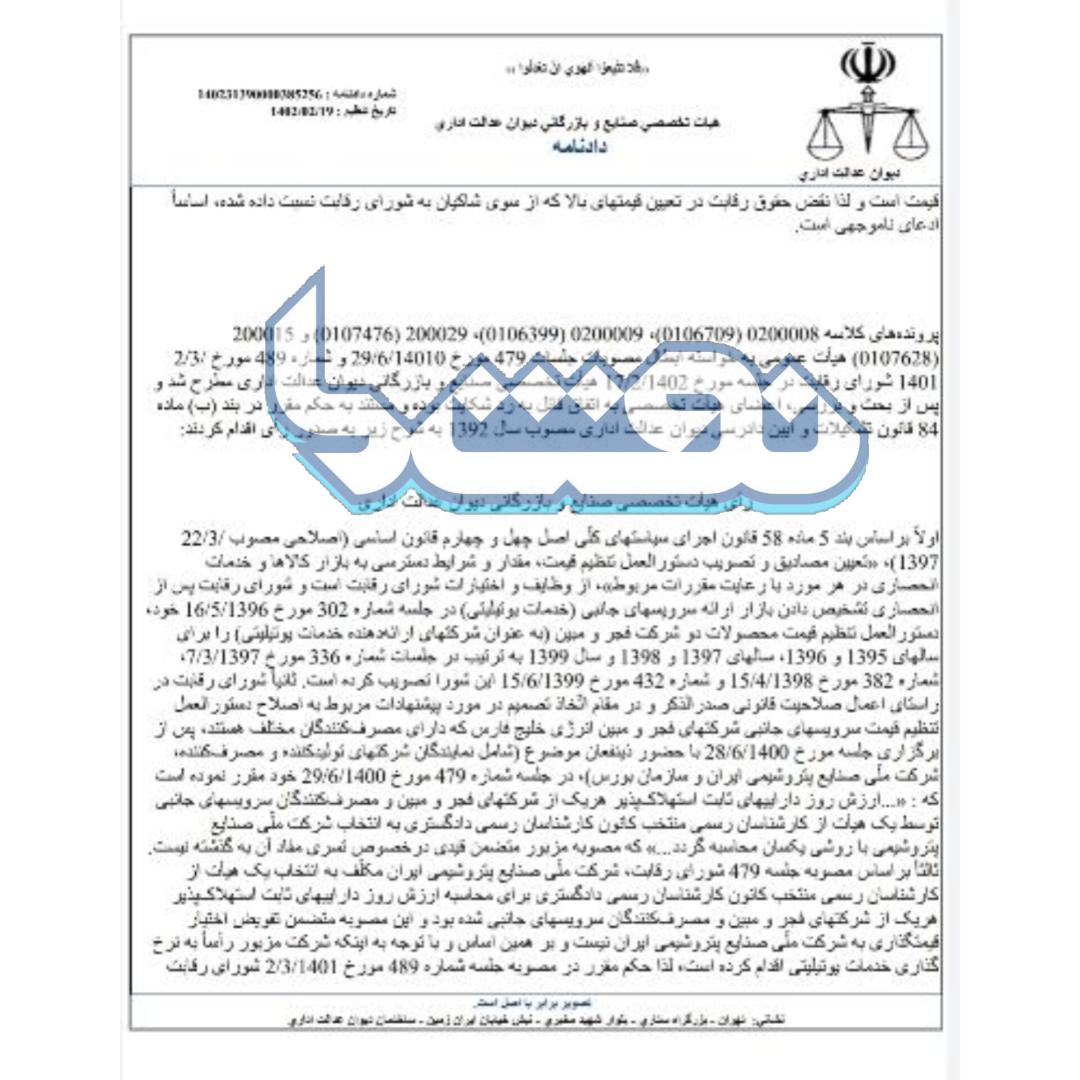 «فلا تتبعوا الهوی ان تعدلوا»
شماره دادنامه : 140231390000385256
تاریخ تنظیم : 1402/02/19
هیات تخصصی صنایع و بازرگانی دیوان عدالت اداری
دادنامه
دیوان عدالت اداری
قیمت است و لذا نقض حقوق رقابت در تعیین قیمتهای بالا که از سوی شاکیان به شورای رقابت نسبت داده شده، اساساً
ادعای ناموجهی است.
پرونده‌های کلاسه 0200008 (0106709)، 0200009 (0106399)، 200029 (0107476) و 200015
(0107628) هیأت عمومی به خواسته ابطال مصوبات جلسات 479 مورخ 29/6/14010 و شماره 489 مورخ 2/3/
1401 شورای رقابت در جلسه مورخ 17/2/1402 هیأت تخصصی صنایع و بازرگانی دیوان عدالت اداری مطرح شد و
پس از بحث و بررسی، اعضای هیأت تخصصی به اتفاق قائل به رد شکایت بوده و مستند به حکم مقرر در بند (ب) ماده
84 قانون تشکیلات و آیین دادرسی دیوان عدالت اداری مصوب سال 1392 به شرح زیر به صدور رأی اقدام کردند:
رأی هیأت تخصصی صنایع و بازرگانی دیوان عدالت اداری
اولاً براساس بند 5 ماده 58 قانون اجرای سیاستهای کلّی اصل چهل و چهارم قانون اساسی (اصلاحی مصوب 22/3/
1397)، «تعیین مصادیق و تصویب دستورالعمل تنظیم قیمت، مقدار و شرایط دسترسی به بازار کالاها و خدمات
انحصاری در هر مورد با رعایت مقررات مربوط»، از وظایف و اختیارات شورای رقابت است و شورای رقابت پس از
انحصاری تشخیص دادن بازار ارائه سرویسهای جانبی (خدمات یوتیلیتی) در جلسه شماره 302 مورخ 16/5/1396 خود،
دستورالعمل تنظیم قیمت محصولات دو شرکت فجر و مبین (به عنوان شرکتهای ارائه‌دهنده خدمات یوتیلیتی) را برای
سالهای 1395 و 1396، سالهای 1397 و 1398 و سال 1399 به ترتیب در جلسات شماره 336 مورخ 7/3/1397،
شماره 382 مورخ 15/4/1398 و شماره 432 مورخ 15/6/1399 این شورا تصویب کرده است. ثانیاً شورای رقابت در
راستای اعمال صلاحیت قانونی صدرالذکر و در مقام اتّخاذ تصمیم در مورد پیشنهادات مربوط به اصلاح دستورالعمل
تنظیم قیمت سرویسهای جانبی شرکتهای فجر و مبین انرژی خلیج فارس که دارای مصرف‌کنندگان مختلف هستند، پس از
برگزاری جلسه مورخ 28/6/1400 با حضور ذینفعان موضوع (شامل نمایندگان شرکتهای تولیدکننده و مصرف‌کننده،
شرکت ملّی صنایع پتروشیمی ایران و سازمان بورس)، در جلسه شماره 479 مورخ 29/6/1400 خود مقرر نموده است
که : «...ارزش روز داراییهای ثابت استهلاک‌پذیر هریک از شرکتهای فجر و مبین و مصرف‌کنندگان سرویسهای جانبی
توسط یک هیأت از کارشناسان رسمی منتخب کانون کارشناسان رسمی دادگستری به انتخاب شرکت ملّی صنایع
پتروشیمی با روشی یکسان محاسبه گردد...» که مصوبه مزبور متضمن قیدی درخصوص تسری مفاد آن به گذشته نیست.
ثالثاً براساس مصوبه جلسه 479 شورای رقابت، شرکت ملّی صنایع پتروشیمی ایران مکلّف به انتخاب یک هیأت از
کارشناسان رسمی منتخب کانون کارشناسان رسمی دادگستری برای محاسبه ارزش روز داراییهای ثابت استهلاک‌پذیر
هریک از شرکتهای فجر و مبین و مصرف‌کنندگان سرویسهای جانبی شده بود و این مصوبه متضمن تفویض اختیار
قیمتگذاری به شرکت ملّی صنایع پتروشیمی ایران نیست و بر همین اساس و با توجه به اینکه شرکت مزبور رأساً به نرخ
گذاری خدمات یوتیلیتی اقدام کرده است، لذا حکم مقرر در مصوبه جلسه شماره 489 مورخ 2/3/1401 شورای رقابت
تصویر برابر با اصل است.
نشانی: تهران - بزرگراه ستاری - بلوار شهید مخبری - نبش خیابان ایران زمین - ساختمان دیوان عدالت اداری